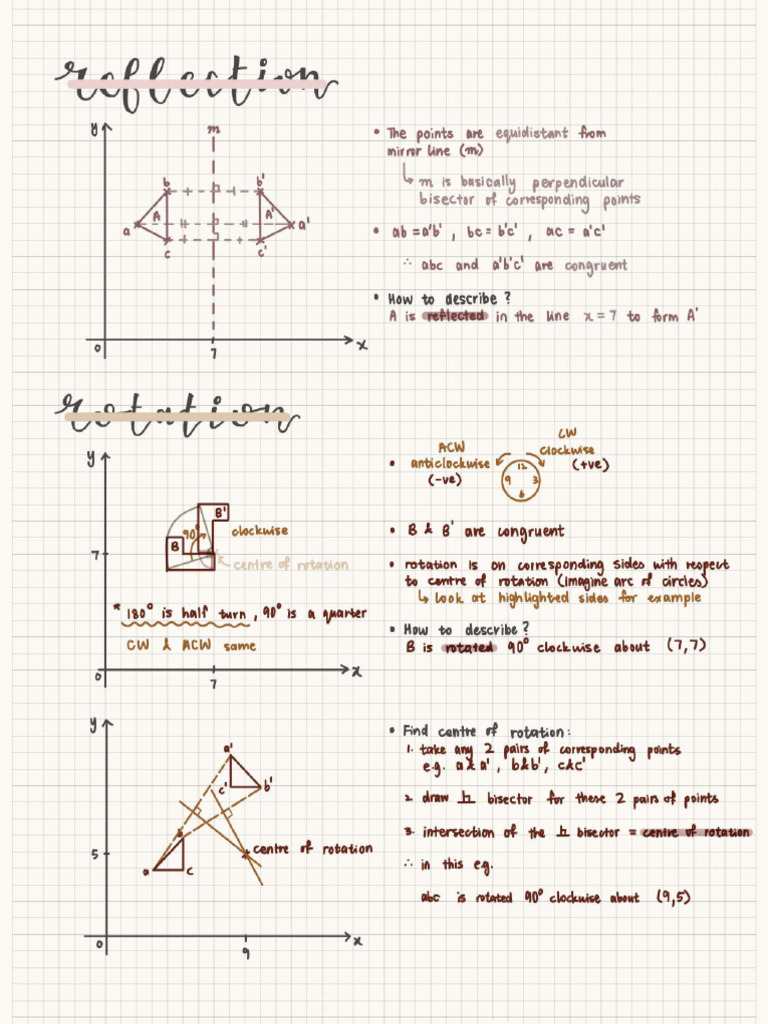 reflection
y
m
b
b'
A
A'
a
a'
c
c'
0
7
x
• The points are equidistant from
mirror line (m)
↳ m is basically perpendicular
bisector of corresponding points
• ab = a'b' , bc = b'c' , ac = a'c'
∴ abc and a'b'c' are congruent
• How to describe?
A is reflected in the line x = 7 to form A'
rotation
y
B'
90°
clockwise
B
centre of rotation
7
* 180° is half turn, 90° is a quarter
CW & ACW same
0
7
x
• ACW
anticlockwise
(-ve)
12
9 3
6
CW
clockwise
(+ve)
• B & B' are congruent
• rotation is on corresponding sides with respect
to centre of rotation (imagine arc of circles)
↳ look at highlighted sides for example
• How to describe?
B is rotated 90° clockwise about (7,7)
y
a'
c'
b'
b
centre of rotation
5
a
c
0
9
x
• Find centre of rotation:
1. take any 2 pairs of corresponding points
e.g. a & a' , b & b' , c & c'
2. draw ⊥ bisector for these 2 pairs of points
3. intersection of the ⊥ bisector = centre of rotation
∴ in this eg.
abc is rotated 90° clockwise about (9,5)